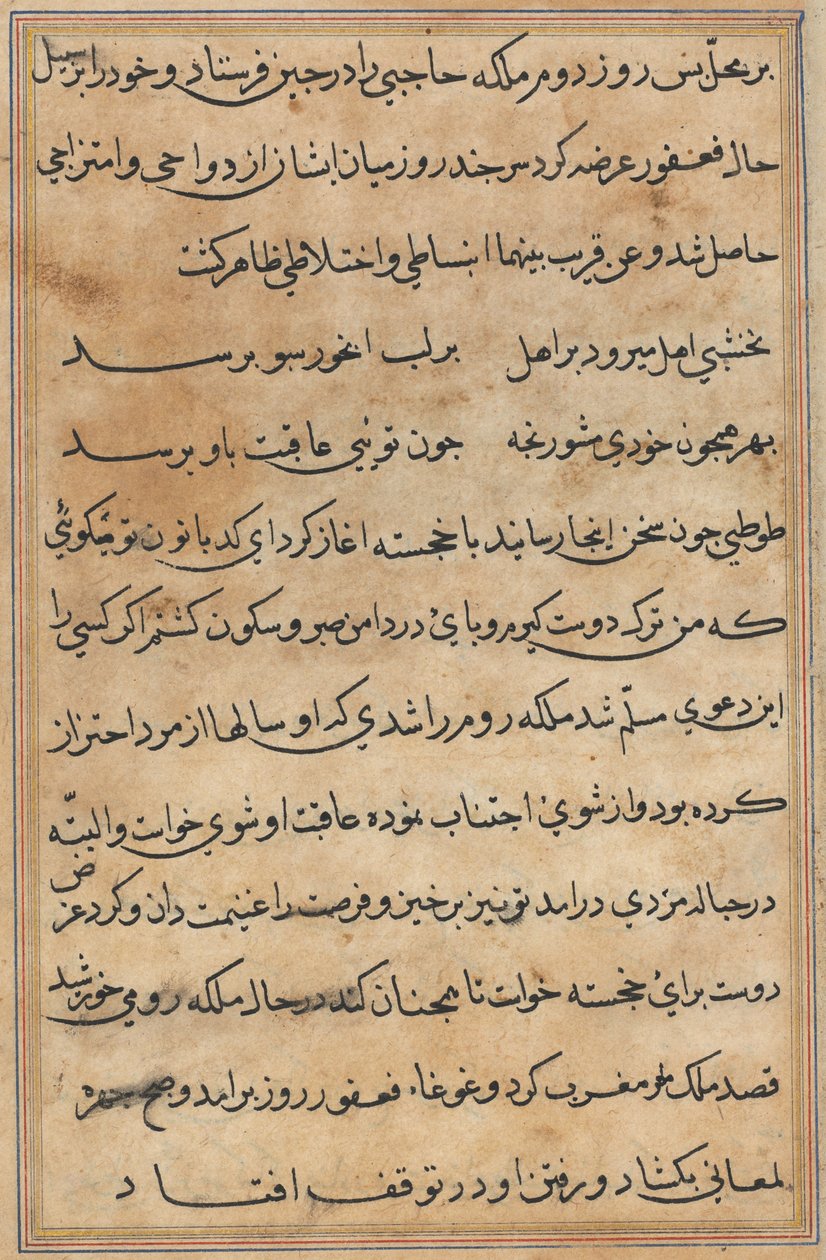 بر محلّ بس روز دوم ملکه حاجبی را در جین فرستاد و خود را بر سبیل
حال فعفور عرضه کرد سر جند روز میان ایشان ازدواجی و امتزاجی
حاصل شد و عن قریب بینهما انبساطی و اختلاطی ظاهر کشت
نخشبی اهل میرود بر اهل بر لب ابخور سبو برسد
بهر همجون خودی مشو رنجه جون تویئی عاقبت باو برسد
طوطی جون سخن اینجا رسانید با خجسته اغاز کرد ای کدبانو تو میکوئی
که من ترک دوست کیرم و بای در دامن صبر و سکون کشم اکر کسی را
این دعوی مسلّم شد ملکه روم را شدی که او سالها از مرد احتراز
کرده بود و از شوی اجتناب نموده عاقبت او شوی خواست و البتّه
در حباله مردی درامد تو نیز برخیز و فرصت را غنیمت دان و کرد عرض
دوست برای خجسته خواست تا همجنان کند در حال ملکه رومی خورشید
قصد ملک مغرب کرد و غوغاء فعفور روز برامد و صبح جهره
لمعانی بکشاد و رفتن او در توقف افتاد